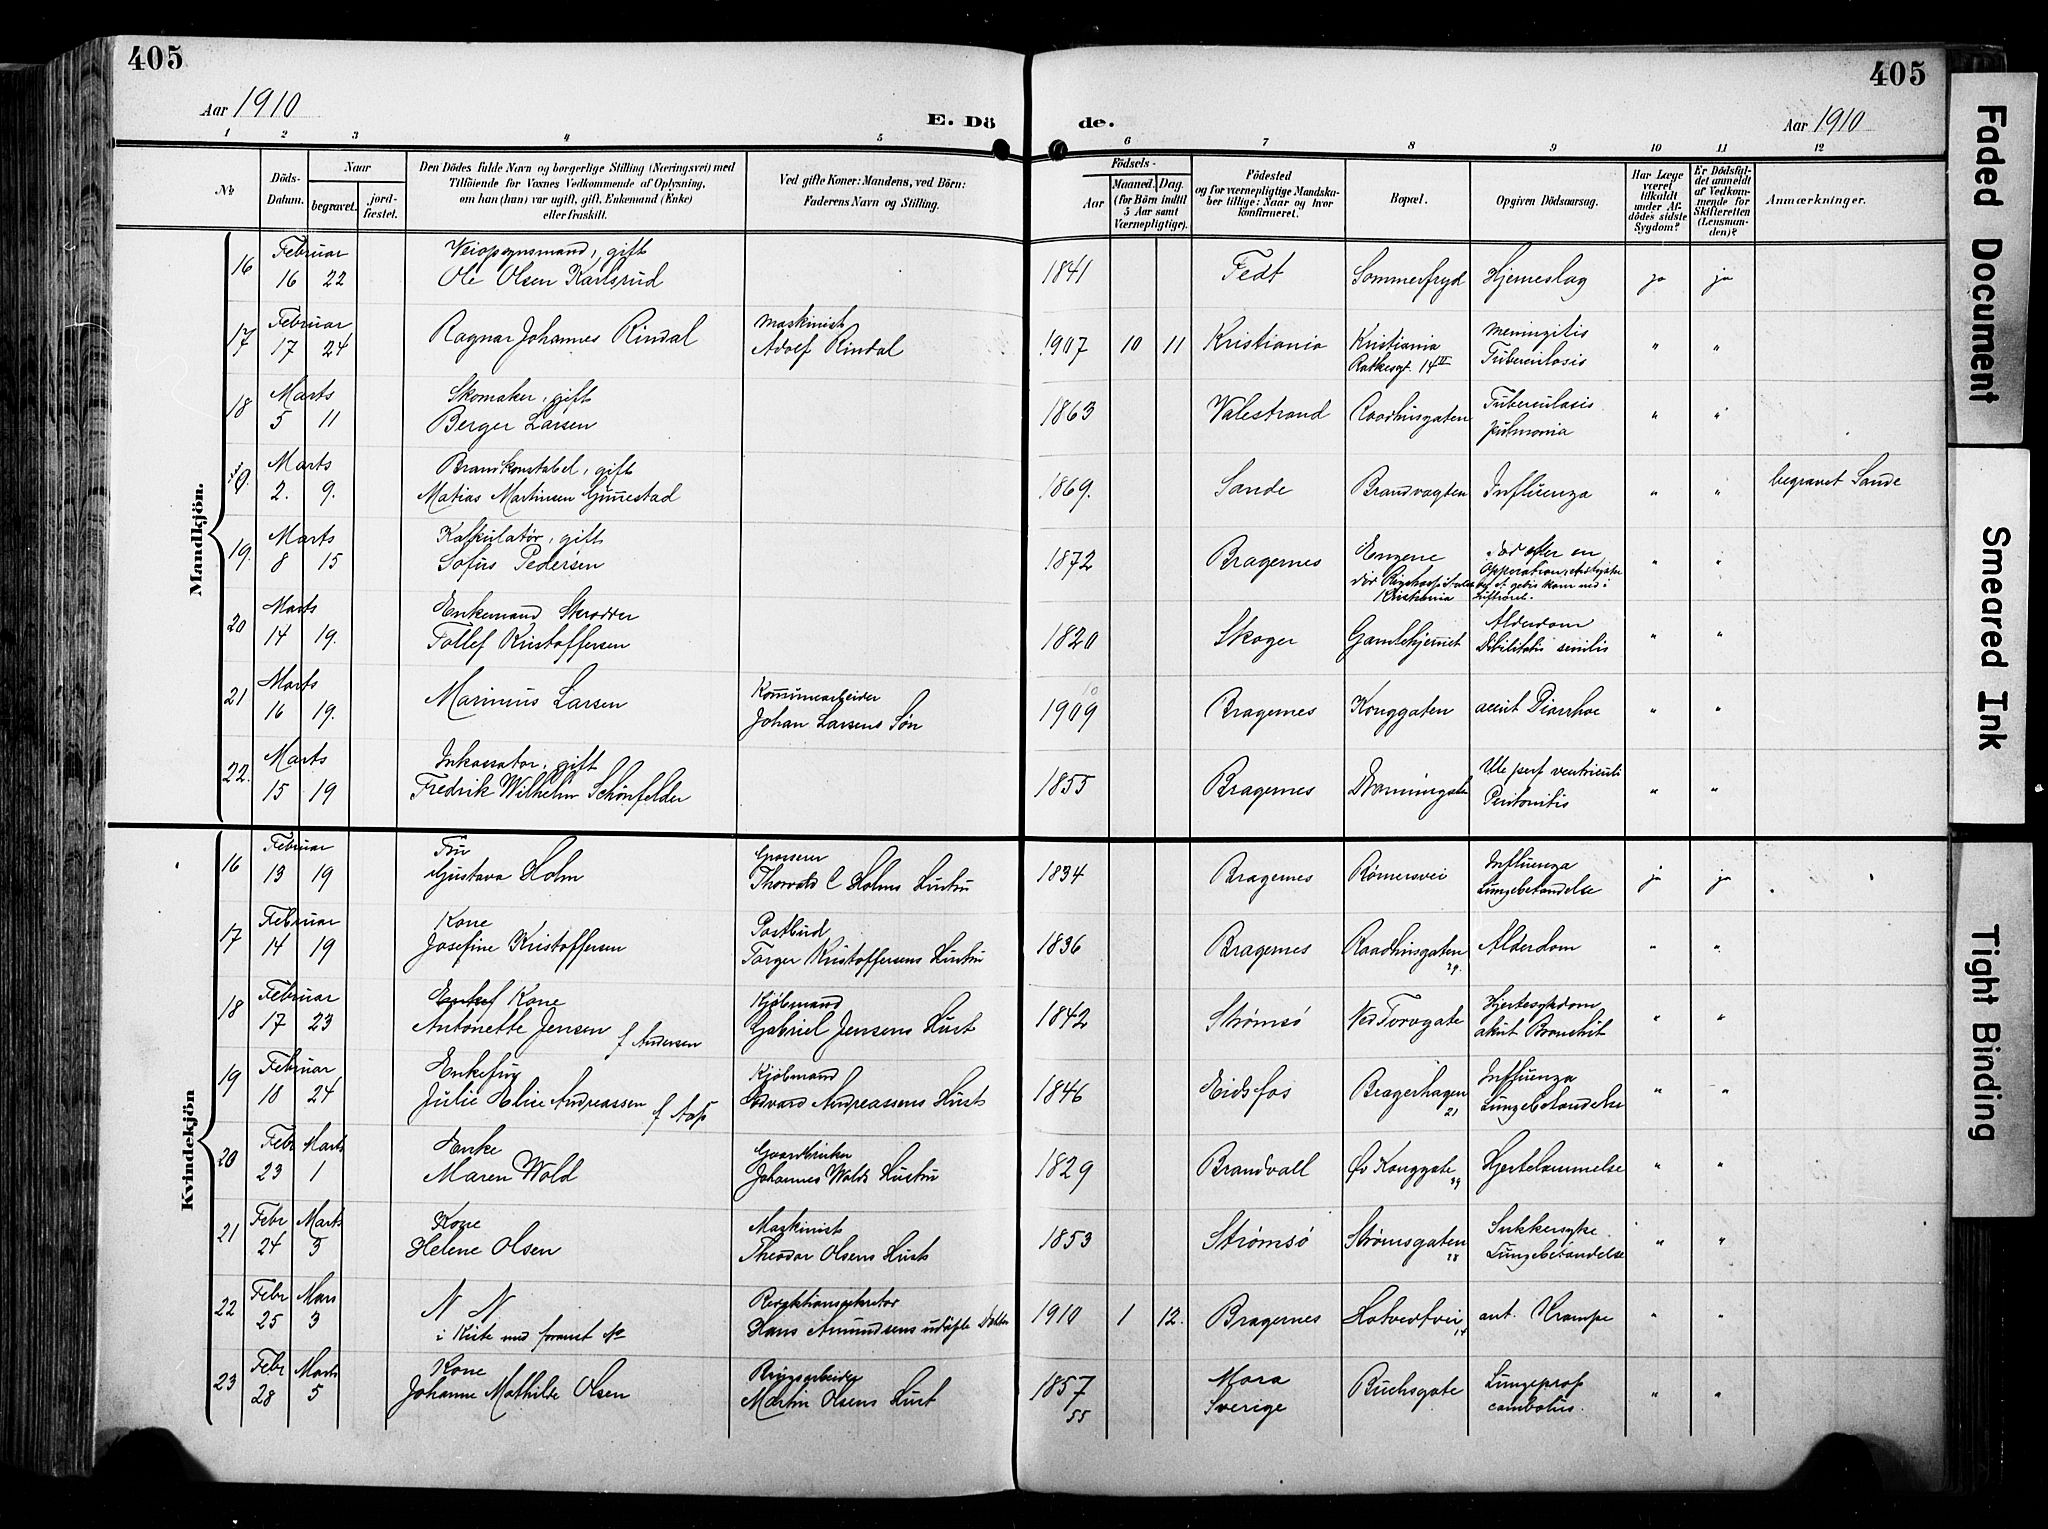 405
405
Aar 1910
E. Dö
de.
Aar 1910
1 2 3 4 5 6 7 8 9 10 11 12
№
Döds-Datum.
Naar
begravet.
jord-fæstet.
Den Dödes fulde Navn og borgerlige Stilling (Næringsvei) med
Tilföiende for Voxnes Vedkommende af Oplysning,
om han (hun) var ugift, gift, Enkemand (Enke)
eller fraskilt.
Ved gifte Koner: Mandens, ved Börn:
Faderens Navn og Stilling.
Födsels-
Aar
Maaned.
Dag.
(for Börn indtil
5 Aar samt
Værnepligtige).
Födested
og for værnepligtige Mandska-
ber tillige: Naar og hvor
konfirmeret.
Bopæl.
Opgiven Dödsaarsag.
Har Læge
været
tilkaldt
under Af-
dödes sidste
Sygdom?
Er Dödsfal-
det anmeldt
af Vedkom-
mende for
Skifteretten
(Lensman-
den)?
Anmærkninger.
Mandkjön.
16 Februar gift
16 22 Ole Olsen Karlsrud 1841 Fedt Sommerfryd Hjerneslag ja ja
17 Februar Maskinist Meningitis
17 24 Ragnar Johannes Rindal Adolf Rindal 1907 10 11 Kristiania Kristiania Tuberculosis " "
14 III
18 Marts Skomaker, gift Tuberculosis
5 11 Berger Larsen 1863 Valestrand Raadhusgaten pulmonia " "
Marts Brandkonstabel, gift
2. 9. Matias Martinsen Gunnestad 1869. Sande Brandvagten Influenza " " begravet Sande
19. Marts Kalkulatør, gift Død efter en
8 15 Sofus Pedersen 1872 Bragernes Engene " "
Kristiania
20 Marts Enkemand, Skrædder Alderdom
14 19. Tollef Kristoffersen 1820 Skoger Gamlehjemet Debilitatis senilis " "
21 Marts Kommunearbeider 10
16 19. Marinius Larsen Johan Larsens Søn 1909 Bragernes Konggaten acut Diarrhoe " "
22. Marts Inkassator, gift Ulc perf ventriculi
15 19 Fredrik Wilhelm Schönfelder 1855 Bragernes Peritonitis " "
Kvindekjön
16 Februar Fru Grosserer Influenza
13 19 Gustava Holm Thorvald C Holms Hustru 1834 Bragernes Rømersvei Lungebetændelse ja ja
17 Februar Kone Postbud
14 19 Josefine Kristoffersen Torger Kristoffersens Hustru 1836 Bragernes Raadhusgaten Alderdom " "
29.
18 Februar Enkef Kone Kjøbmand Hjertesykdom
17 23 Antonette Jensen f Andersen Gabriel Jensens Hust 1842 Strømsø Ned Torvgate akut Bronchit " "
19 Februar Enkefru Kjøbmand Influenza
18 24 Julie Elise Andreassen f Aas Edvard Andreassens Husts 1846 Eidsfos Bragerhagen Lungebetændelse " "
21
20 Febr Marts Enke Gaardbruker
23 1 Maren Wold Johannes Wolds Hustru 1829 Brandvall Øv Konggate Hjertelammelse " "
39
21 Febr Marts Kone Maskinist Sukkersyke
24 3 Helene Olsen Theodor Olsens Husts 1853 Strømsø Strømsgaten Lungebetændelse " "
28
22 Febr Mars N N
25 3 i Kiste med foranst No Hans Amundsens udøpte Datter 1910 1 12. Bragernes Hotvedtvei ant. Krampe " "
14
23 Febr Marts Kone Mora
28 5 Johanne Mathilde Olsen Martin Olsens Hust 1857 Sverige Buchsgate " "
55
Faded Document
Smeared Ink
Tight Binding